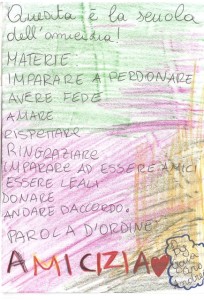 Questa è la scuola
dell'amicizia!
MATERIE
IMPARARE A PERDONARE
AVERE FEDE
AMARE
RISPETTARE
RINGRAZIARE
IMPARARE AD ESSERE AMICI
ESSERE LEALI
DONARE
ANDARE D'ACCORDO.
PAROLA D'ORDINE:
AMICIZIA